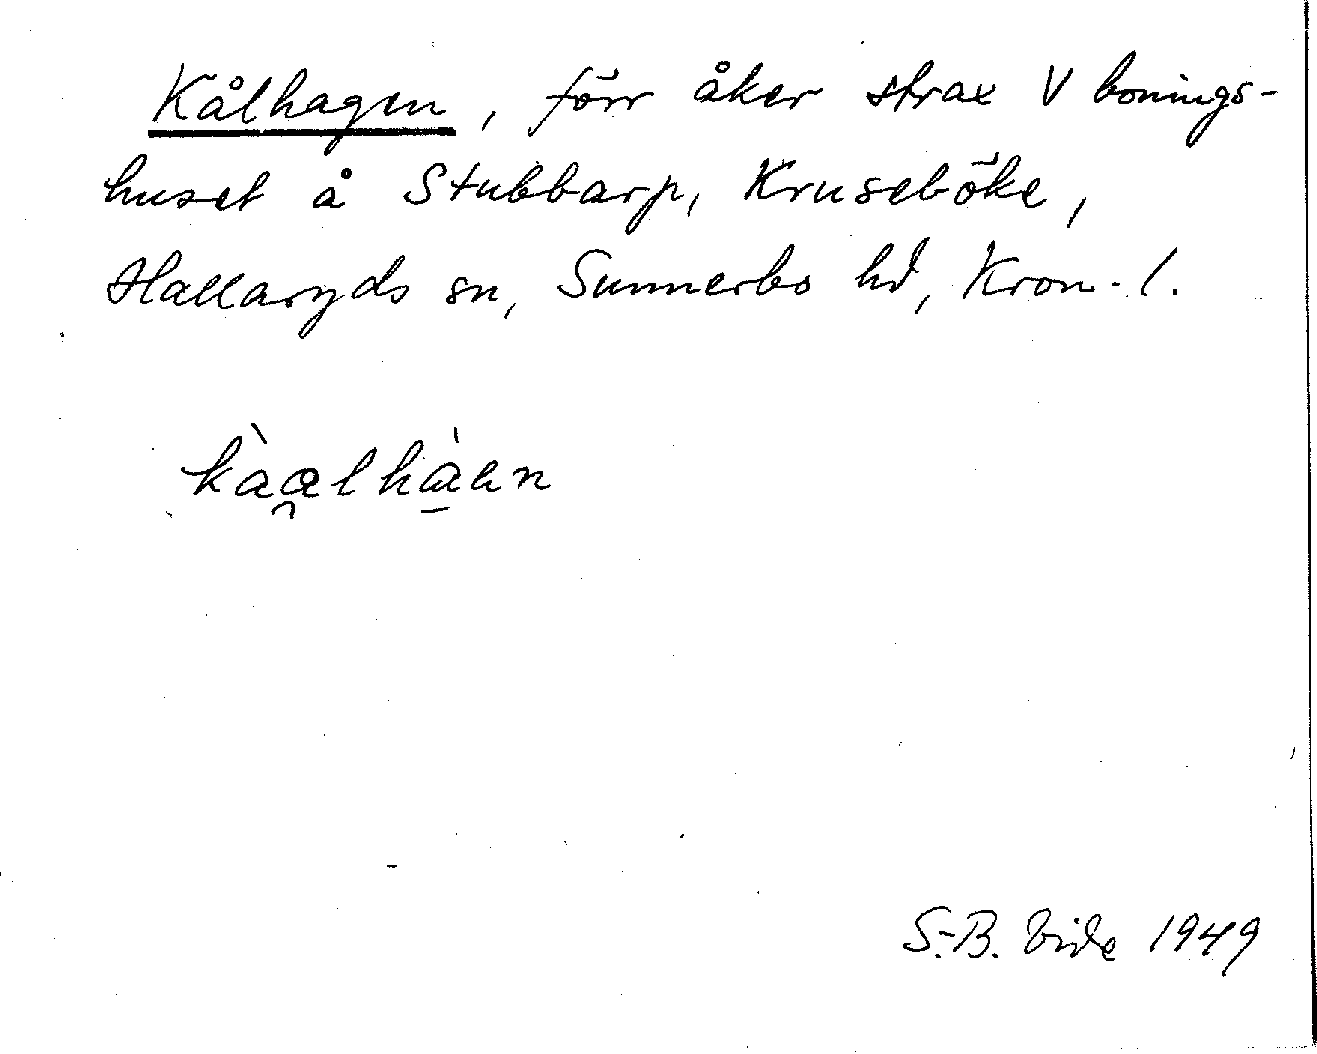 Kålhagen, förr åker strax V bonings-
huset å Stubbarp, Kruseböke,
Hallaryds sn, Sunnerbo hd, Kron. l.
kàalhàen
S.-B. Vide 1949